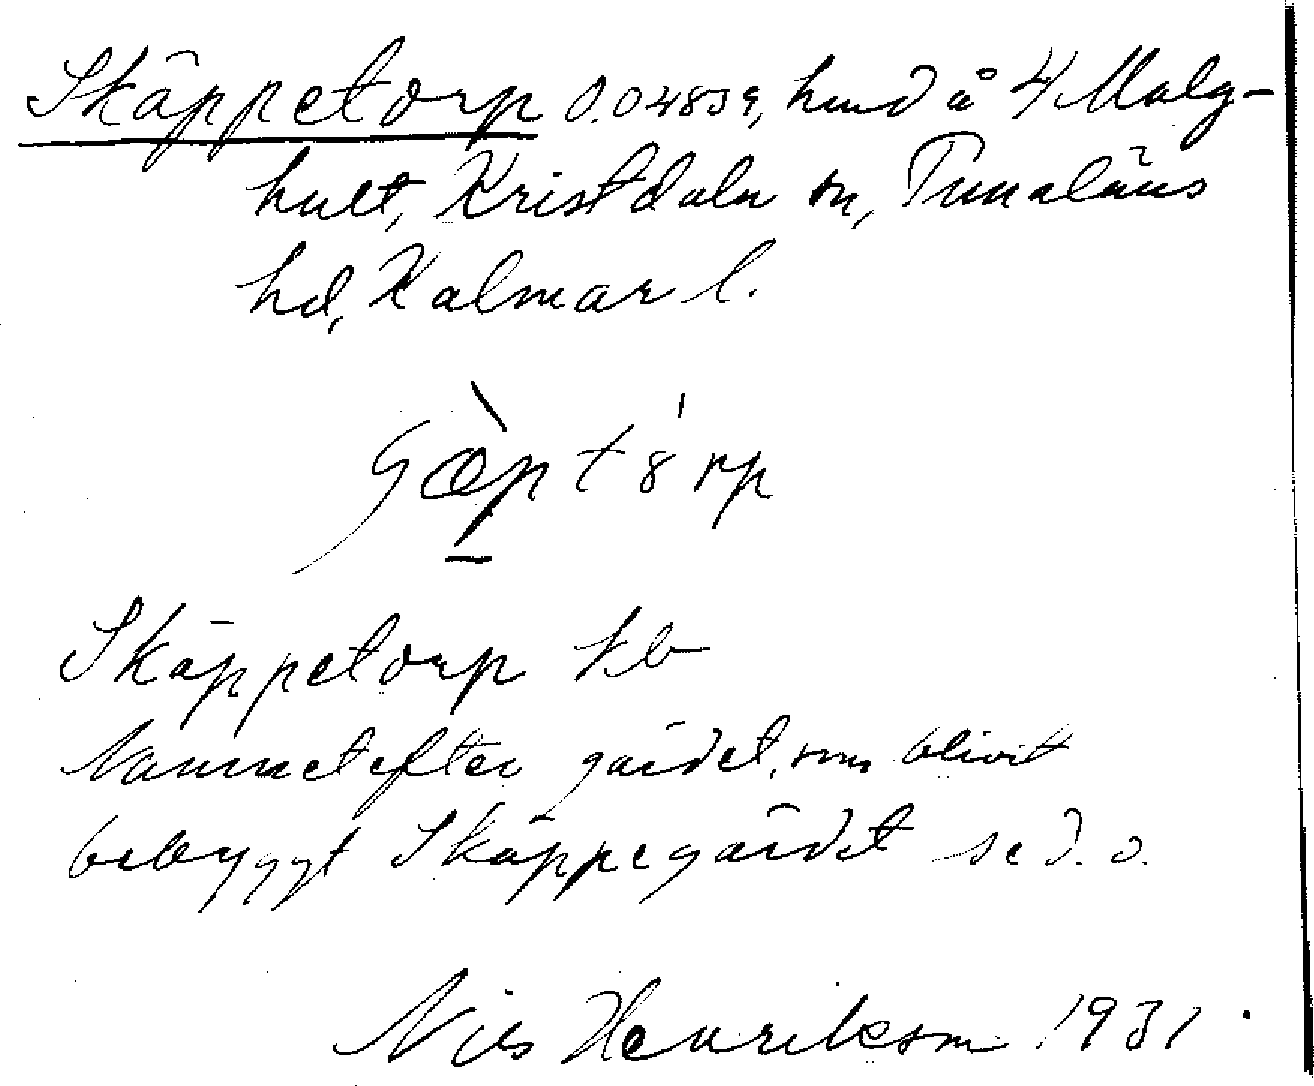 Skäppetorp 0.04839, hmd å 4 Malg-
hult, Kristdala sn, Tunaläns
hd, Kalmar l.
Skäppetorp kb
Namnet efter gärdet, som blivit
bebyggt Skäppegärdet se d. o.
Nils Henrikson 1931.